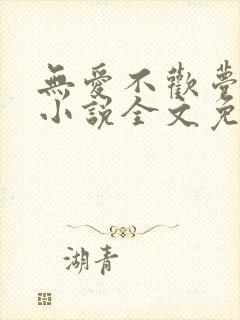 無愛不歡夢
小說全文免
湖青